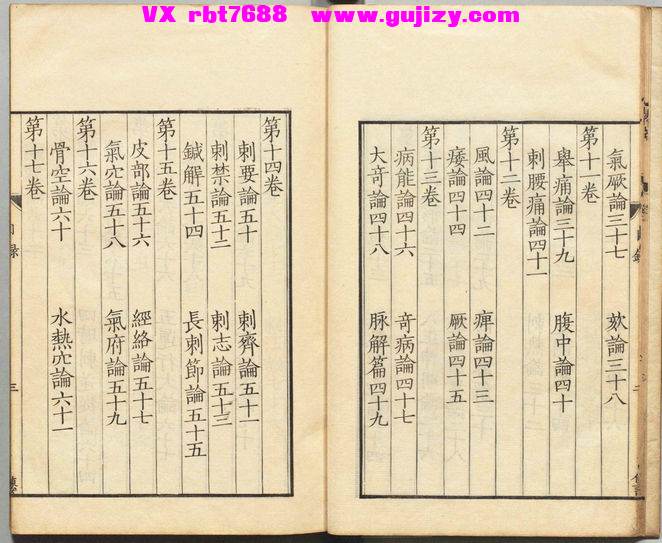 VX rbt7688 www.gujizy.com
氣厥論三十七 欬論三十八
第十一卷
舉痛論三十九 腹中論四十
刺腰痛論四十一
第十二卷
風論四十二 痺論四十三
痿論四十四 厥論四十五
第十三卷
病能論四十六 奇病論四十七
大奇論四十八 脉解篇四十九
第十四卷
刺要論五十 刺齊論五十一
刺禁論五十二 刺志論五十三
鍼解五十四 長刺節論五十五
第十五卷
皮部論五十六 經絡論五十七
氣穴論五十八 氣府論五十九
第十六卷
骨空論六十 水熱穴論六十一
第十七卷
三